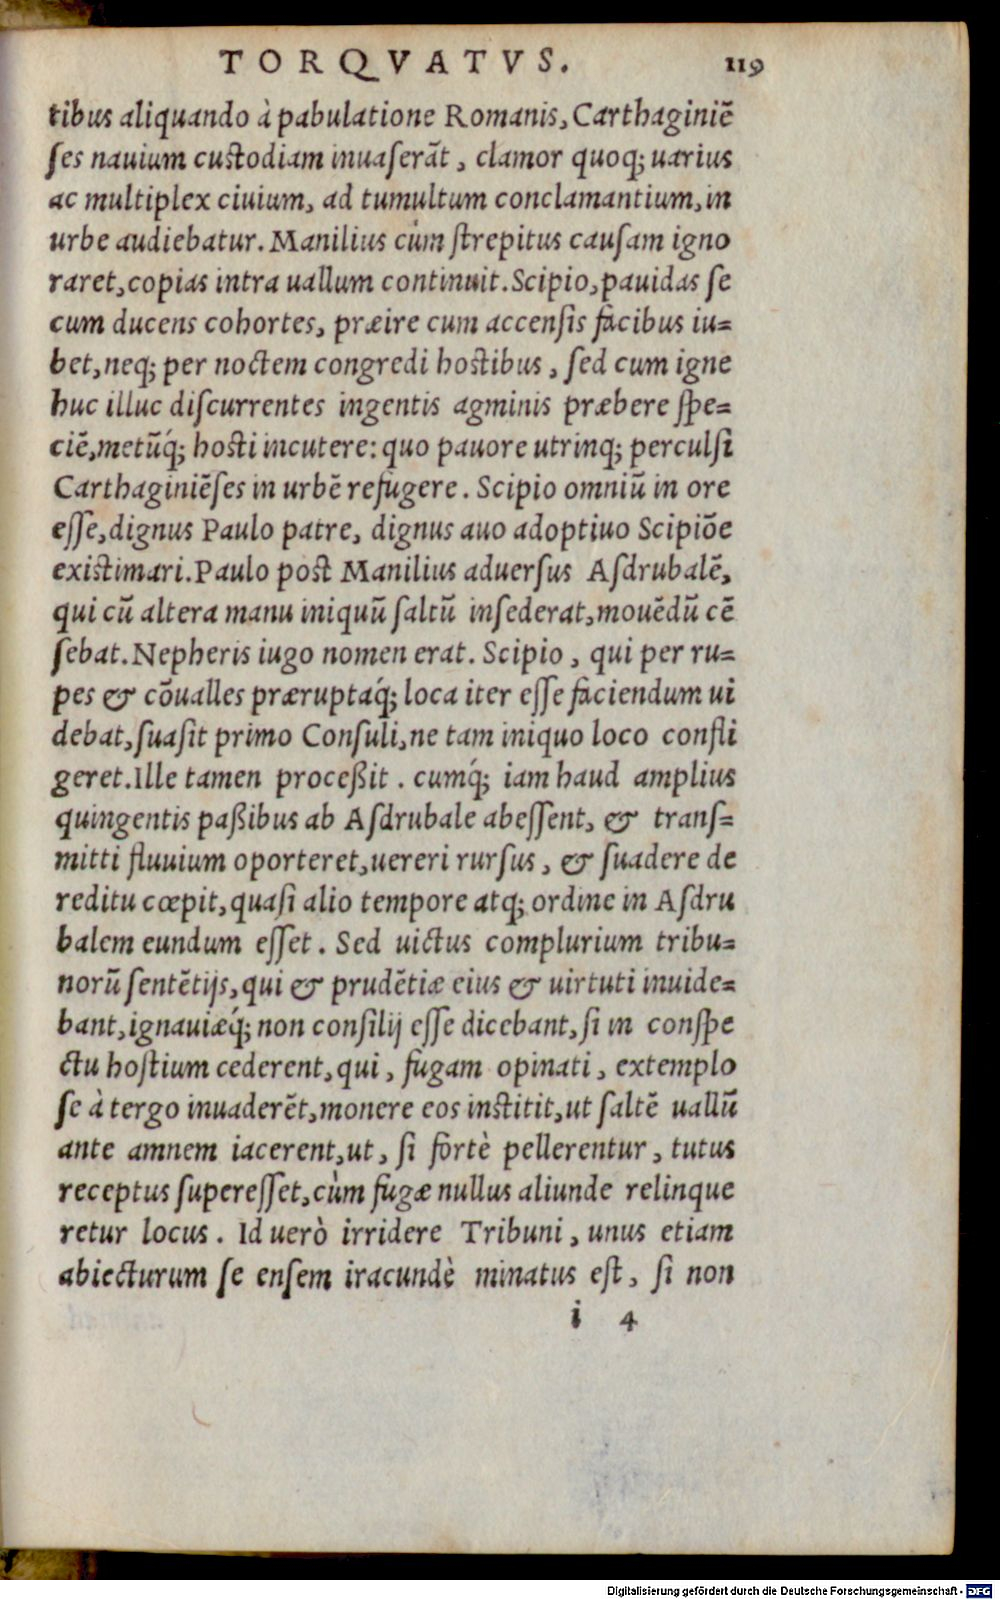 TORQVATVS. 119
tibus aliquando à pabulatione Romanis, Carthaginiẽ
ſes nauium cuſtodiam inuaſerãt, clamor quoq; uarius
ac multiplex ciuium, ad tumultum conclamantium, in
urbe audiebatur. Manilius cùm ſtrepitus cauſam igno
raret, copias intra uallum continuit. Scipio, pauidas ſe
cum ducens cohortes, præire cum accenſis facibus iu=
bet, neq; per noctem congredi hoſtibus, ſed cum igne
huc illuc diſcurrentes ingentis agminis præbere ſpe=
ciẽ, metũq́; hoſti incutere: quo pauore utrinq; perculſi
Carthaginiẽſes in urbẽ refugere. Scipio omniũ in ore
eſſe, dignus Paulo patre, dignus auo adoptiuo Scipiõe
exiſtimari. Paulo poſt Manilius aduerſus Aſdrubalẽ,
qui cũ altera manu iniquũ ſaltũ inſederat, mouẽdũ cẽ
ſebat. Nepheris iugo nomen erat. Scipio, qui per ru=
pes & cõualles præruptaq́; loca iter eſſe faciendum ui
debat, ſuaſit primo Conſuli, ne tam iniquo loco confli
geret. Ille tamen proceßit. cumq́; iam haud amplius
quingentis paßibus ab Aſdrubale abeſſent, & tranſ=
mitti fluuium oporteret, uereri rurſus, & ſuadere de
reditu cœpit, quaſi alio tempore atq; ordine in Aſdru
balem eundum eſſet. Sed uictus complurium tribu=
norũ ſentẽtijs, qui & prudẽtiæ eius & uirtuti inuide=
bant, ignauiæq́; non conſilij eſſe dicebant, ſi in conſpe
ctu hoſtium cederent, qui, fugam opinati, extemplo
ſe à tergo inuaderẽt, monere eos inſtitit, ut ſaltẽ uallũ
ante amnem iacerent, ut, ſi fortè pellerentur, tutus
receptus ſupereſſet, cùm fugæ nullus aliunde relinque
retur locus. Id uerò irridere Tribuni, unus etiam
abiecturum ſe enſem iracundè minatus eſt, ſi non
i 4
Digitalisierung gefördert durch die Deutsche Forschungsgemeinschaft - DFG